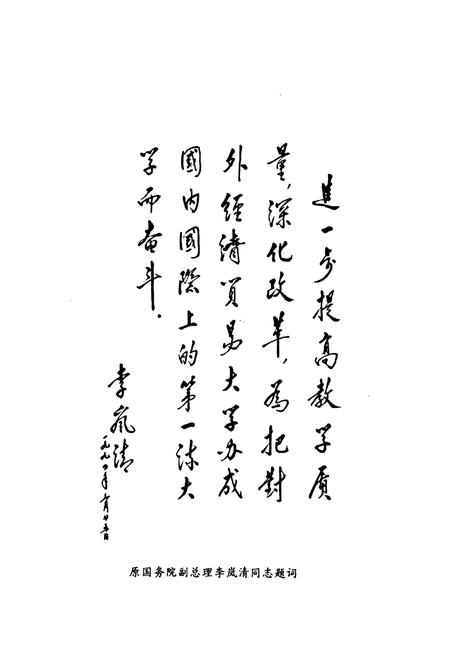 進一步提高教学质
量，深化改革，為把對
外經濟貿易大学办成
國内國際上的第一流大
学而奋斗．
李岚清
一九九〇年 月廿五日
原国务院副总理李岚清同志题词